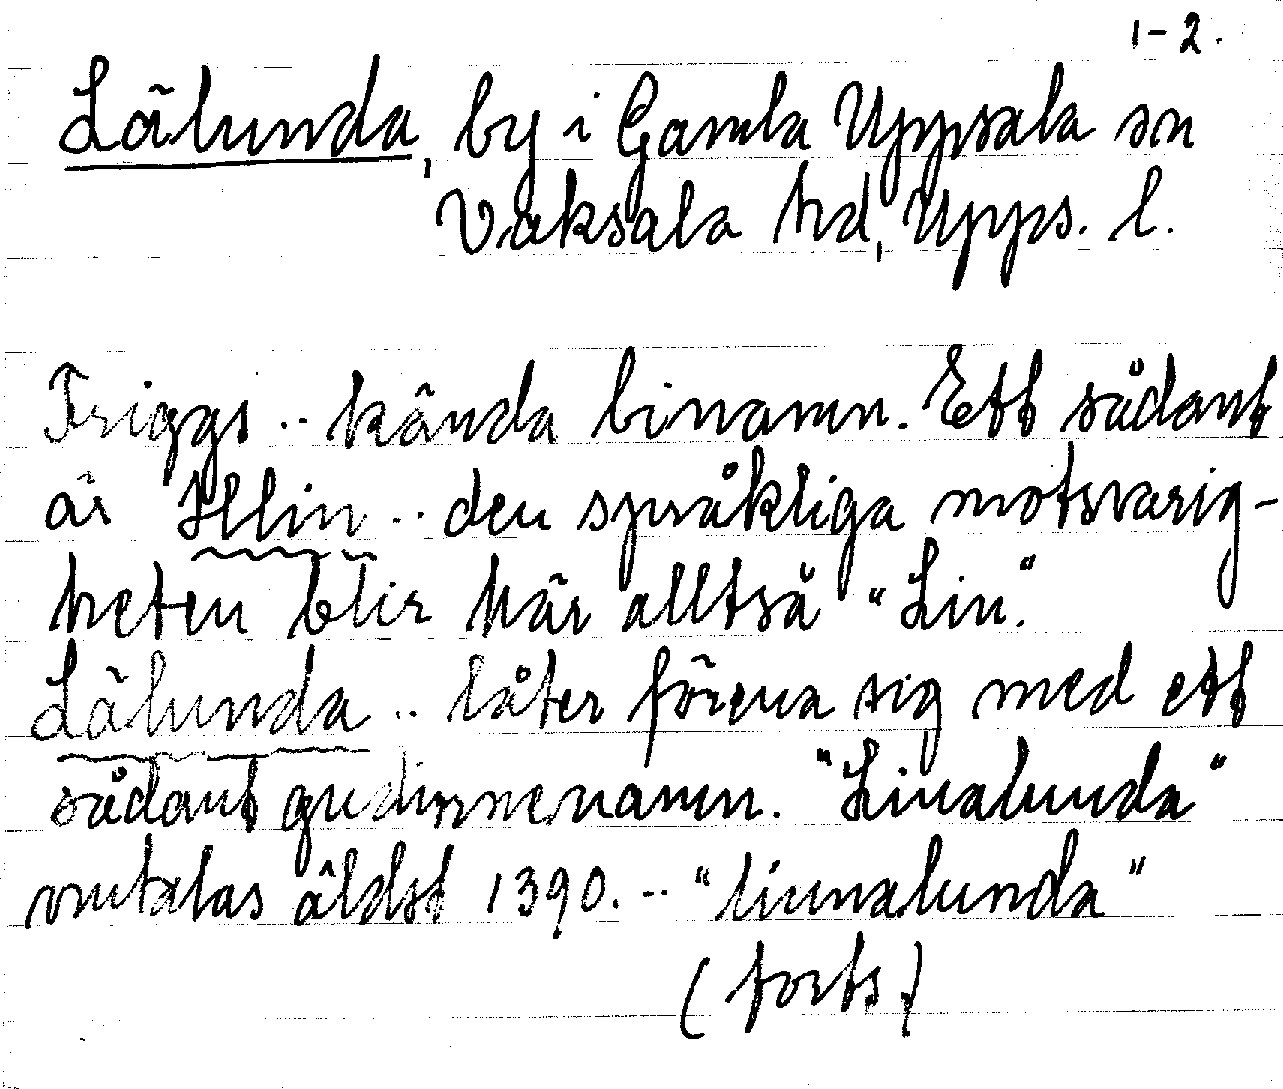 1-2.
Lälunda, by i Gamla Uppsala sn
Vaksala hd, Upps. l.
Friggs .. kända binamn. Ett sådant
är Hlin .. den språkliga motsvarig-
heten blir här alltså "Lin."
Lälunda .. låter förena sig med ett
sådant gudinnenamn. "Linalunda"
omtalas äldst 1390. .. "linnalunda"
(forts)